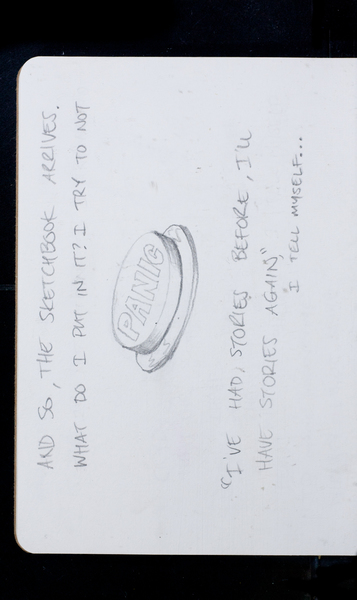 AND SO, THE SKETCHBOOK ARRIVES.
WHAT DO I PUT IN IT? I TRY TO NOT
PANIC
"I'VE HAD, STORIES BEFORE, I'LL
HAVE STORIES AGAIN"
I TELL MYSELF...